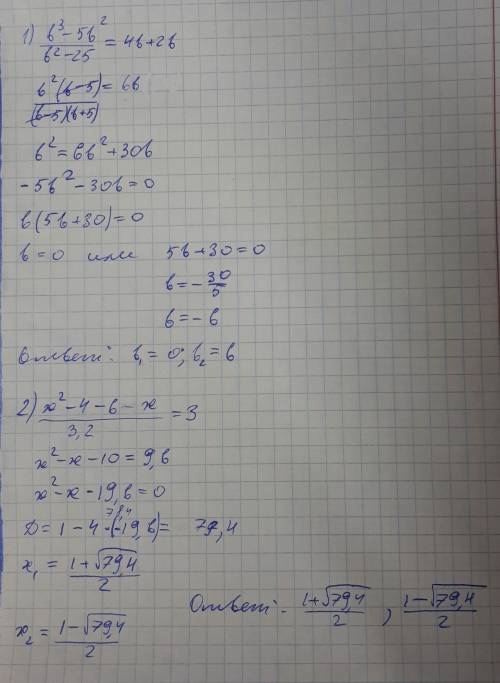 1) (b³-5b²)/(b²-25) = 4b+2b
b²(b-5)/((b-5)(b+5)) = 6b
b² = 6b²+30b
-5b²-30b=0
b(5b+30)=0
b=0 или 5b+30=0
b=-30/5
b=-6
Ответ: b₁=0; b₂=6
2) (x²-4-6-x)/3,2 = 3
x²-x-10=9,6
x²-x-19,6=0
78,4
D=1-4·(-19,6)= 79,4
x₁ = (1+√79,4)/2
x₂ = (1-√79,4)/2
Ответ: (1+√79,4)/2 , (1-√79,4)/2